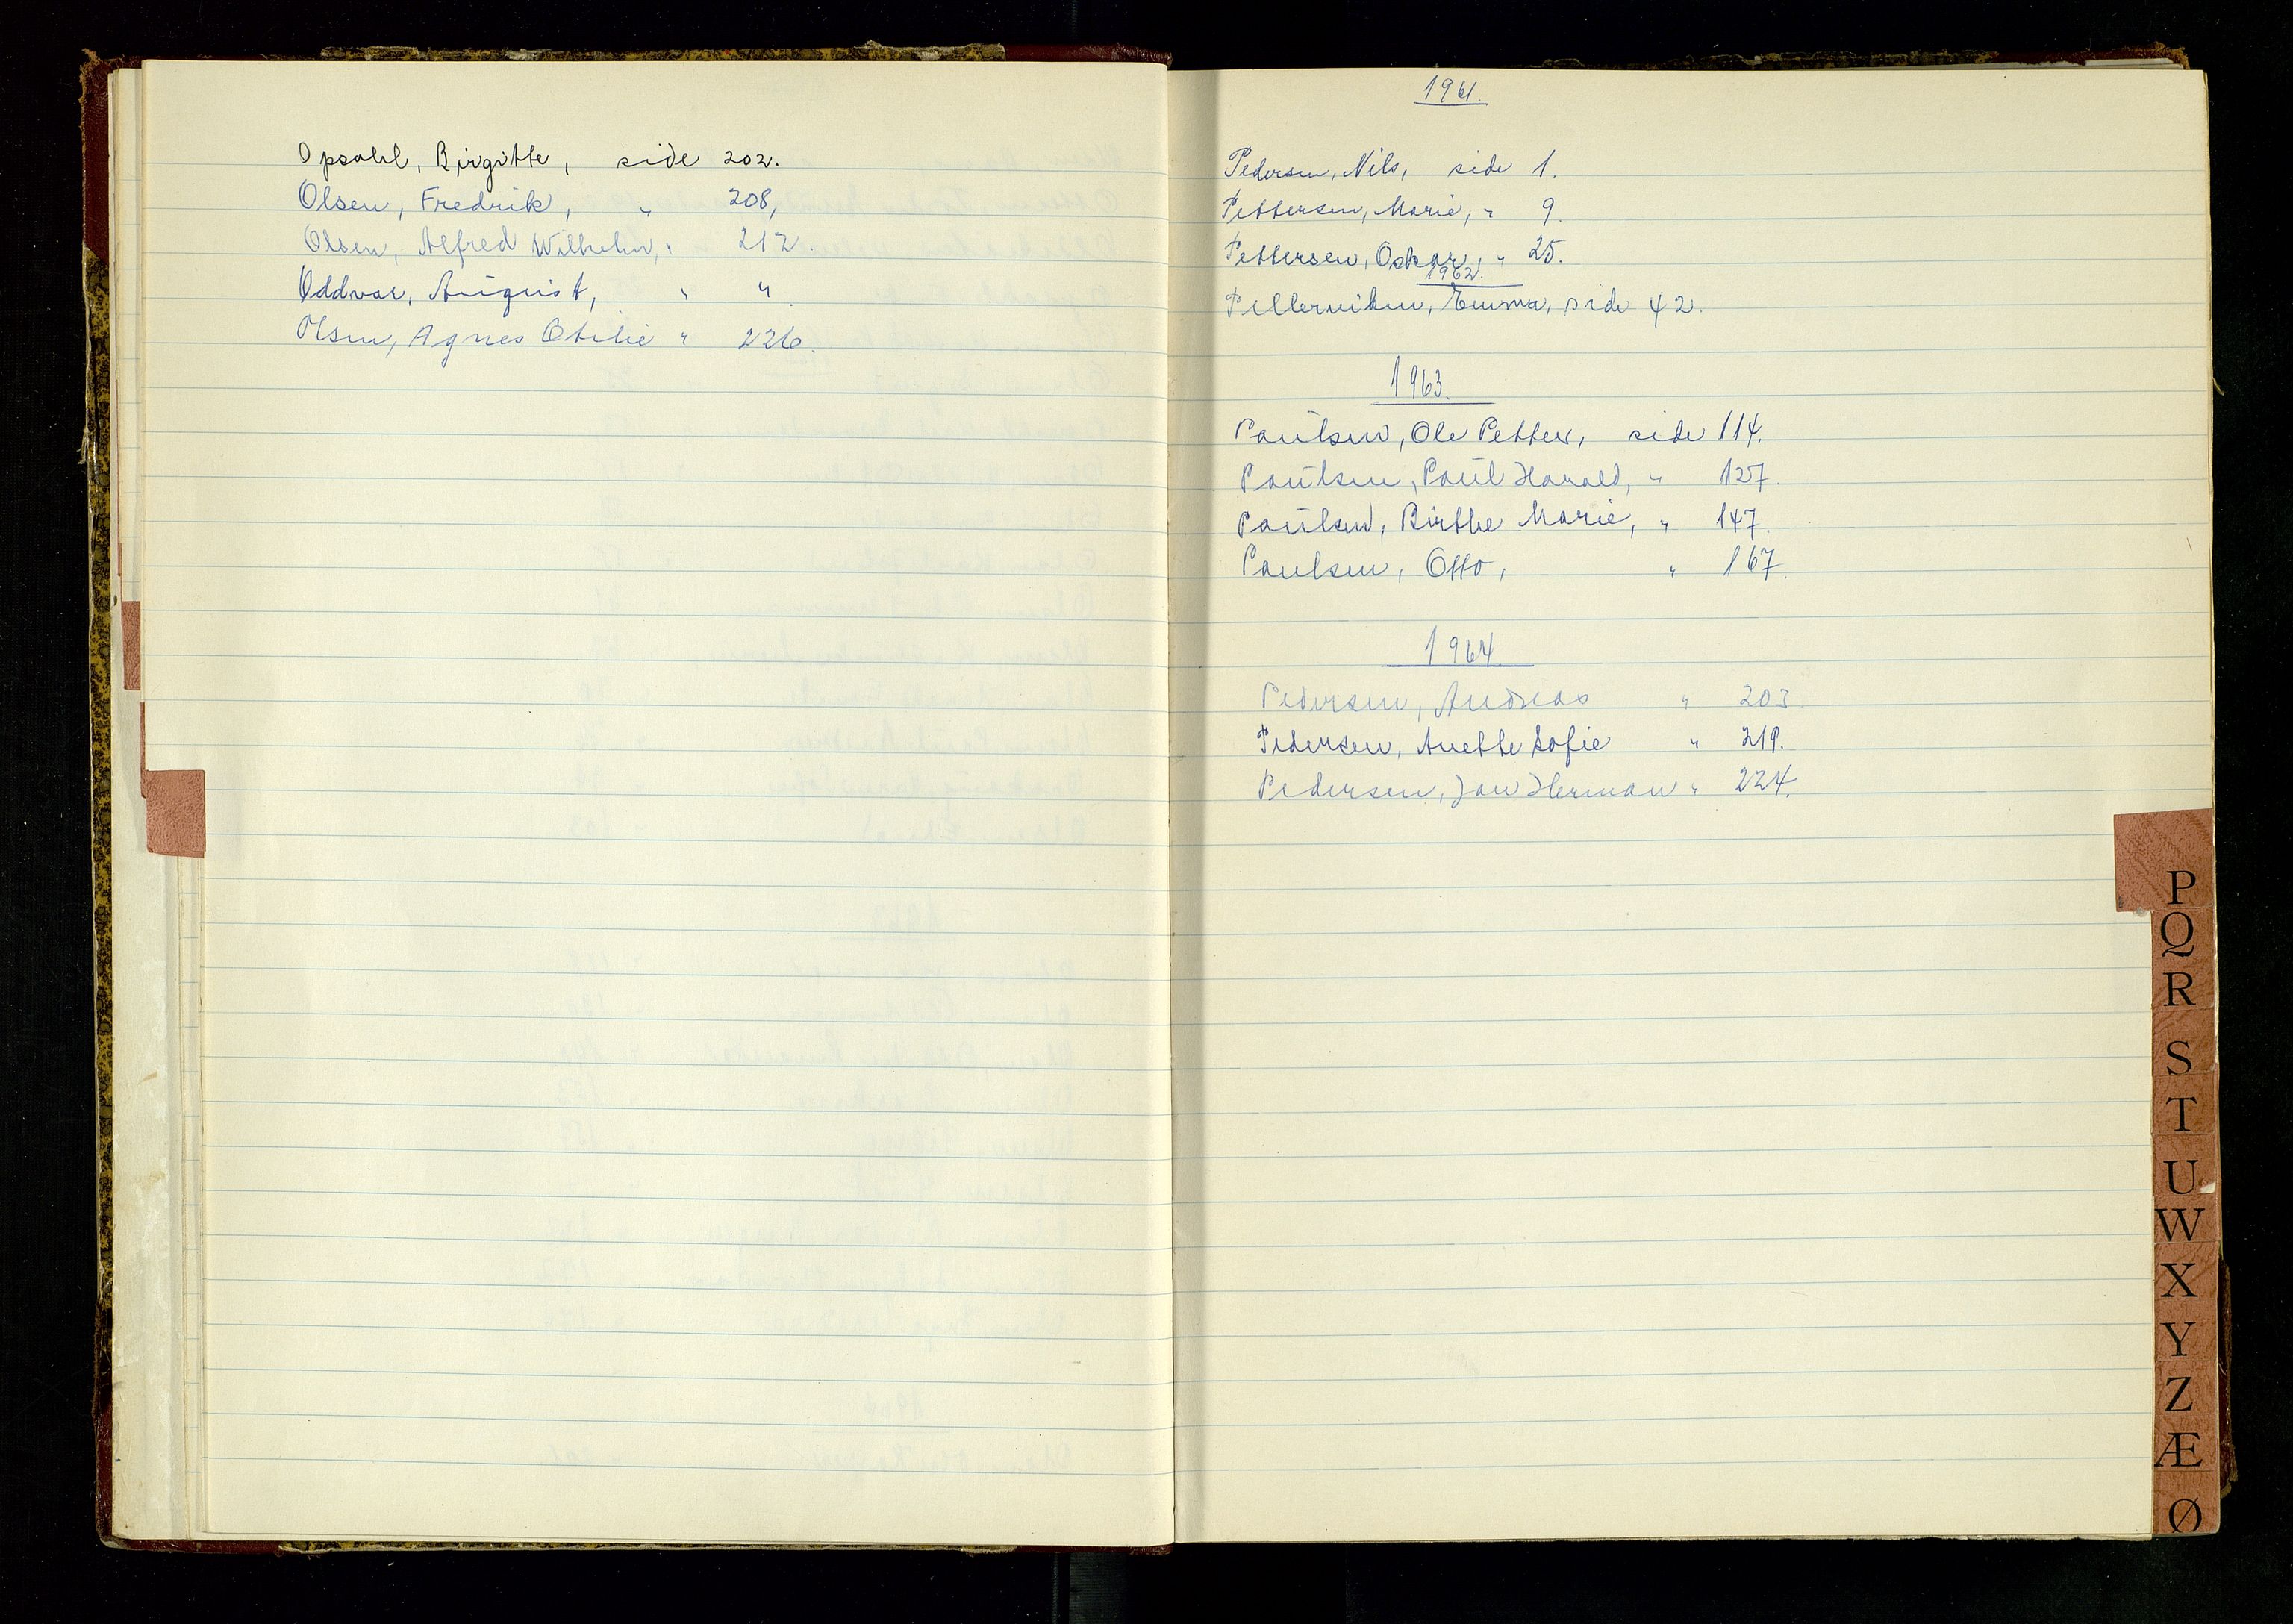 Opsahl, Birgitte, side 202.
Olsen, Fredrik, " 208,
Olsen, Alfred Wilhelm, " 212.
Oddvar, August, " "
Olsen, Agnes Otilie " 226.
1961.
Pedersen, Nils, side 1.
Pettersen, Marie, " 9.
Pettersen, Oskar, " 25.
1962.
Pellerviken, Emma, side 42.
1963.
Paulsen, Ole Petter, side 114.
Paulsen, Paul Harald, " 127.
Paulsen, Birthe Marie, " 147.
Paulsen, Otto, " 167.
1964
Pedersen, Andreas " 203.
Pedersen, Anette Sofie " 219.
Pedersen, Jan Herman " 224.
P
Q
R
S
T
U
W
X
Y
Z
Æ
Ø